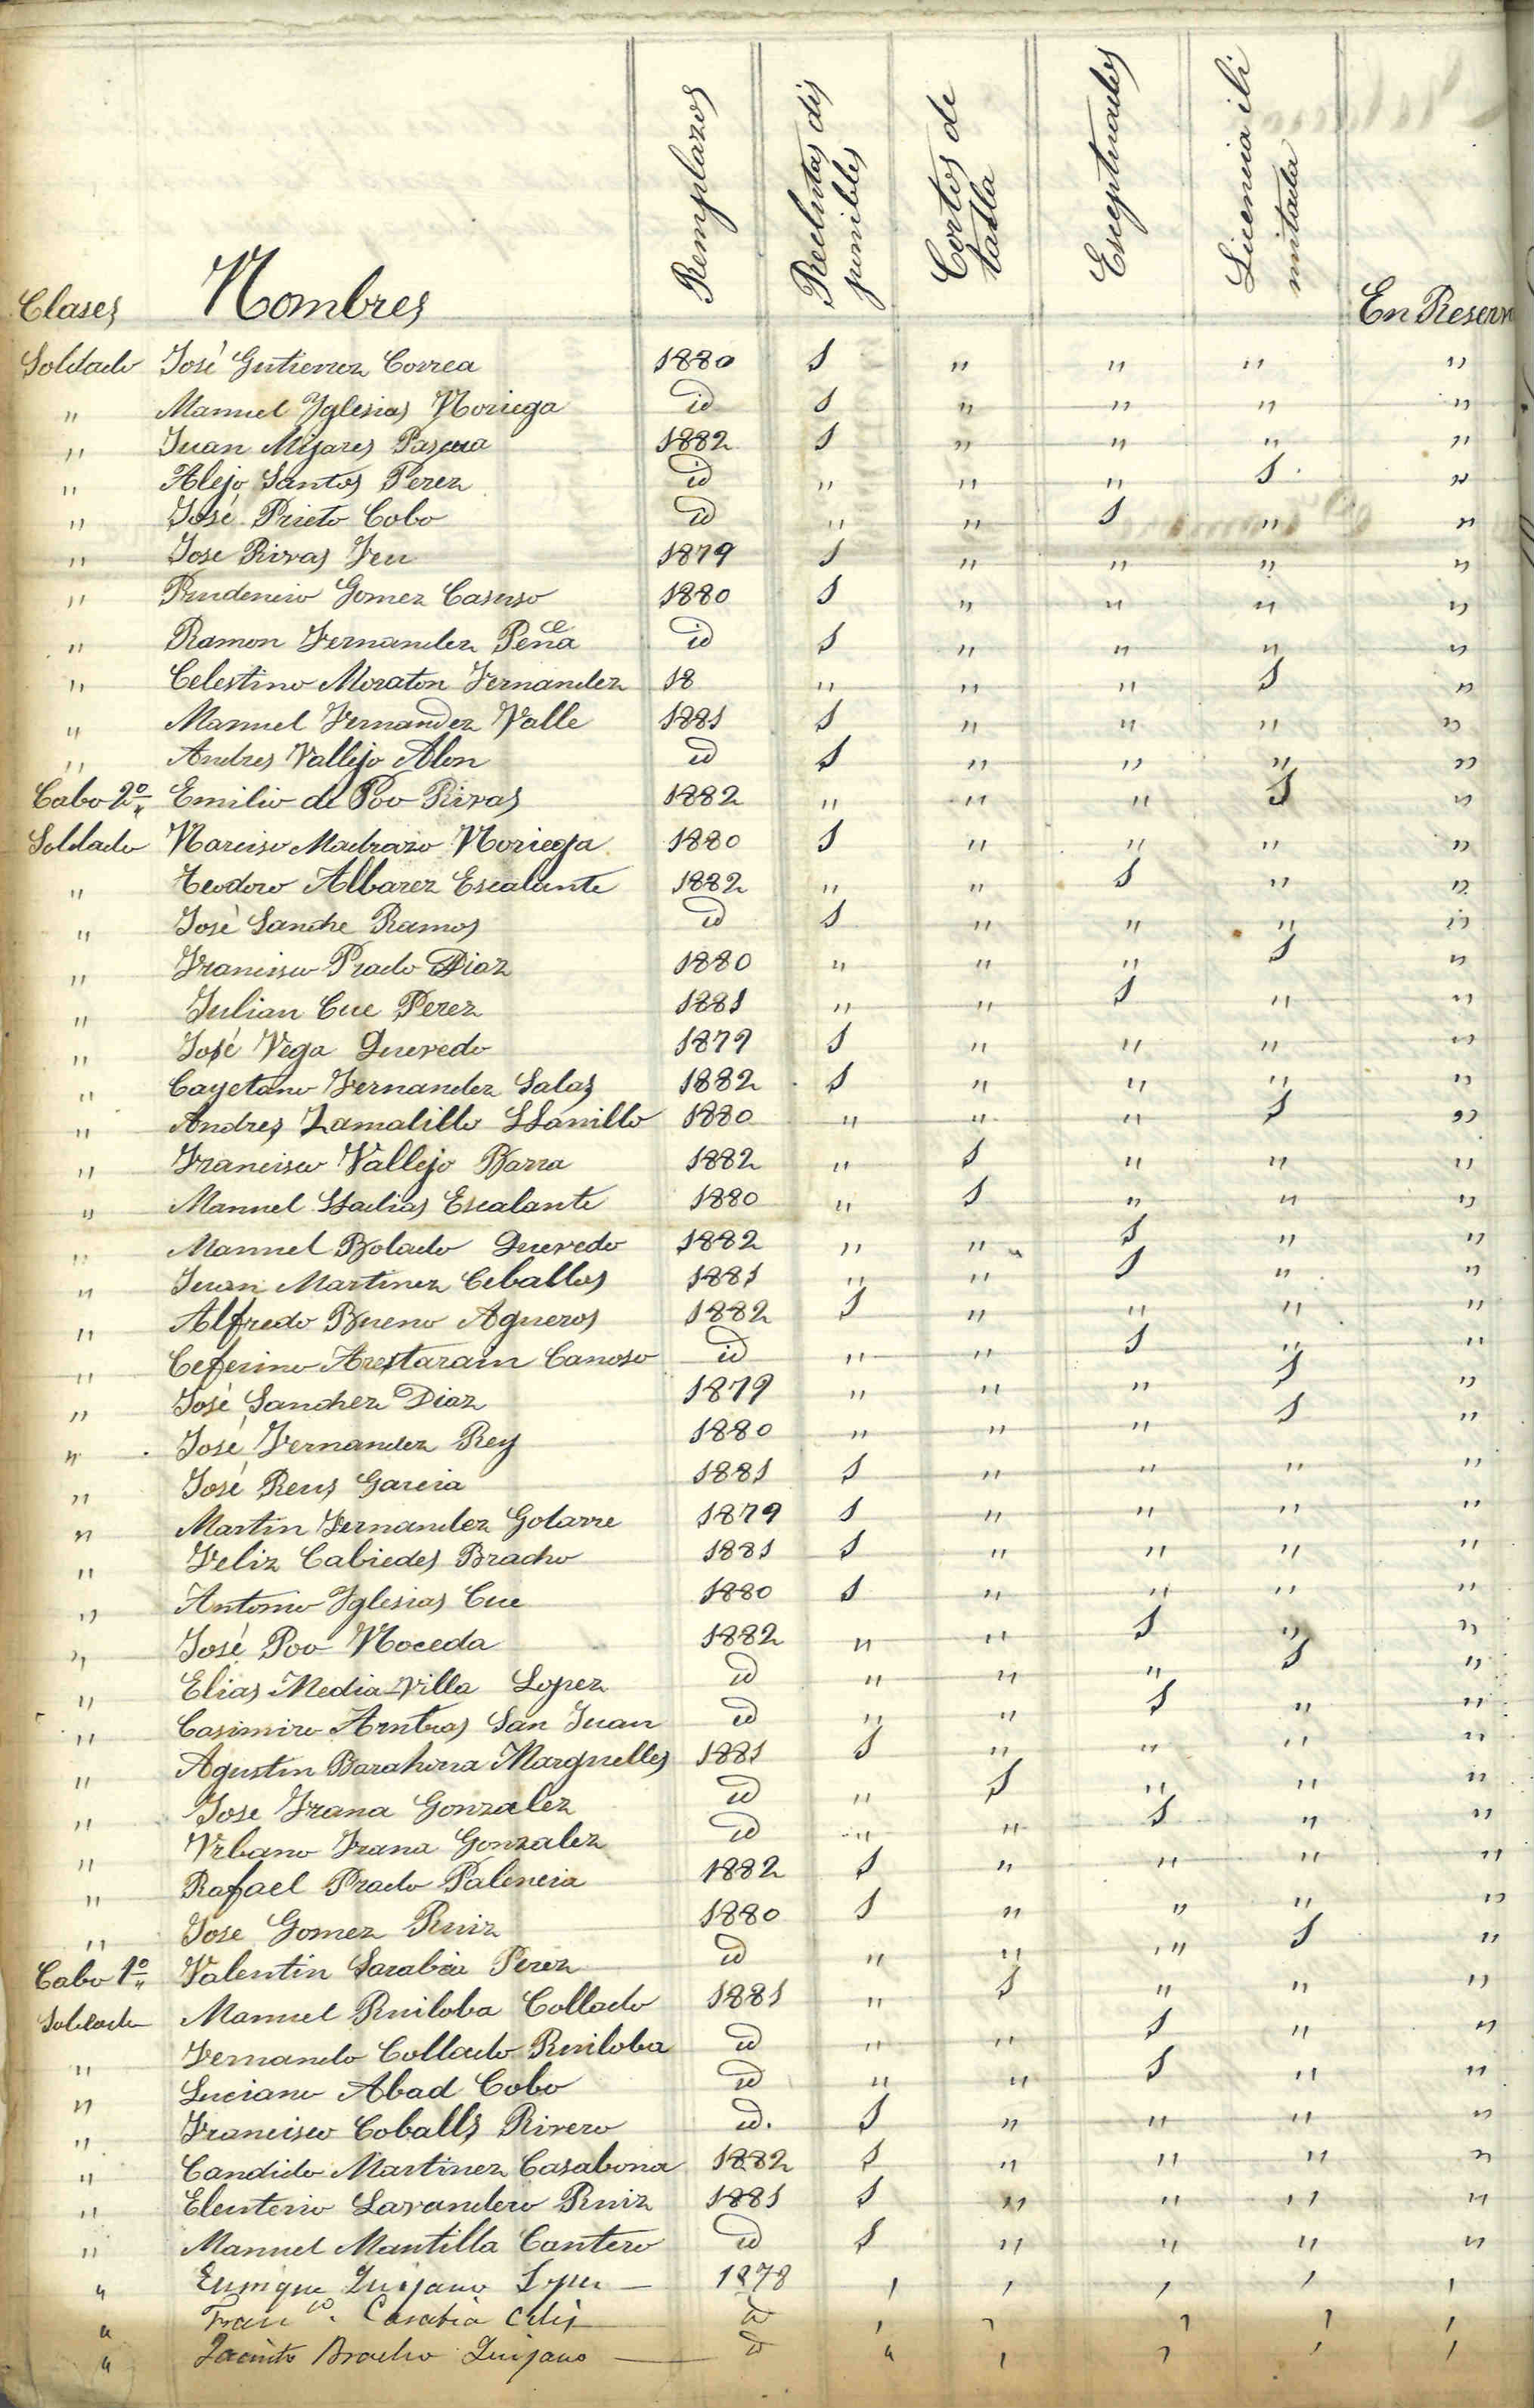 Clases Nombres Remplazos Reclutas dis ponibles Cortos de talla Eseptuados Licencia ili mitada En Reserv
Soldado José Gutierrez Correa 1880 1 " " " "
" Manuel Yglesias Noriega id 1 " " " "
" Juan Mijares Pascua 1882 1 " " " "
" Alejo Santos Perez id " " " 1 "
" José Prieto Cobo id " " 1 " "
" Jose Rivas Feu 1879 1 " " " "
" Prudencio Gomez Casuso 1880 1 " " " "
" Ramon Fernandez Peña id 1 " " " "
" Celestino Moraton Fernandez 18 " " " 1 "
" Manuel Fernandez Valle 1881 1 " " " "
" Andres Vallejo Alon id 1 " " " "
Cabo 2º " Emilio de Poo Rivas 1882 " " " 1 "
Soldado Narciso Madrazo Noriega 1880 1 " " " "
" Teodoro Albarez Escalante 1882 " " 1 " "
" José Sanche Ramos id 1 " " " "
" Francisco Prado Diaz 1880 " " " 1 "
" Julian Cue Perez 1881 " " 1 " "
" José Vega Quevedo 1879 1 " " " "
" Cayetano Fernandez Salas 1882 1 " " " "
" Andres Zamalillo Llanillo 1880 " " " 1 "
" Francisco Vallejo Barra 1882 " 1 " " "
" Manuel Escalante 1880 " 1 " " "
" Manuel Bolado Quevedo 1882 " " 1 " "
" Juan Martinez Ceballos 1881 " " 1 " "
" Alfredo Bueno Agueros 1882 1 " " " "
" Ceferino Canoso id " " 1 " "
" José Sanchez Diaz 1879 " " " 1 "
" José Fernandez Rey 1880 " " " 1 "
" José Reus Garcia 1881 1 " " " "
" Martin Fernandez Gotarre 1879 1 " " " "
" Feliz Cabiedes Bracho 1881 1 " " " "
" Antonio Yglesias Cue 1880 1 " " " "
" José Poo Noceda 1882 " " 1 " "
" Elias Media Villa Lopez id " " " 1 "
" Casimiro San Juan id " " 1 " "
" Agustin Barahona Marguelles 1881 1 " " " "
" Jose Frana Gonzalez id " 1 " " "
" Urbano Frana Gonzalez id " " 1 " "
" Rafael Prado Palencia 1882 1 " " " "
" Jose Gomez Ruiz 1880 1 " " " "
Cabo 1º " Valentin Sarabia Perez id " " " 1 "
Soldado Manuel Ruiloba Collado 1881 " 1 " " "
" Fernando Collado Ruiloba id " " 1 " "
" Luciano Abad Cobo id " " 1 " "
" Francisco Coballs Rivero id. 1 " " " "
" Candido Martinez Casabona 1882 1 " " " "
" Eleuterio Lavandero Ruiz 1881 1 " " " "
" Manuel Mantilla Cantero id 1 " " " "
" Enrique Quijano Lopez 1878 , , , , ,
" Franco. Celis id , , , , ,
" Jacinto Bracho Quijano id " , , , ,